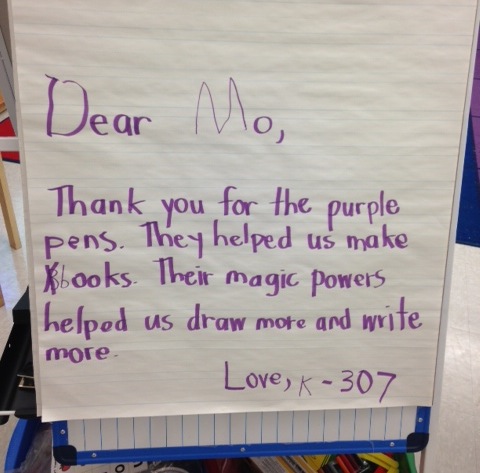 Dear Mo,
Thank you for the purple
pens. They helped us make
books. Their magic powers
helped us draw more and write
more.
Love, K-307